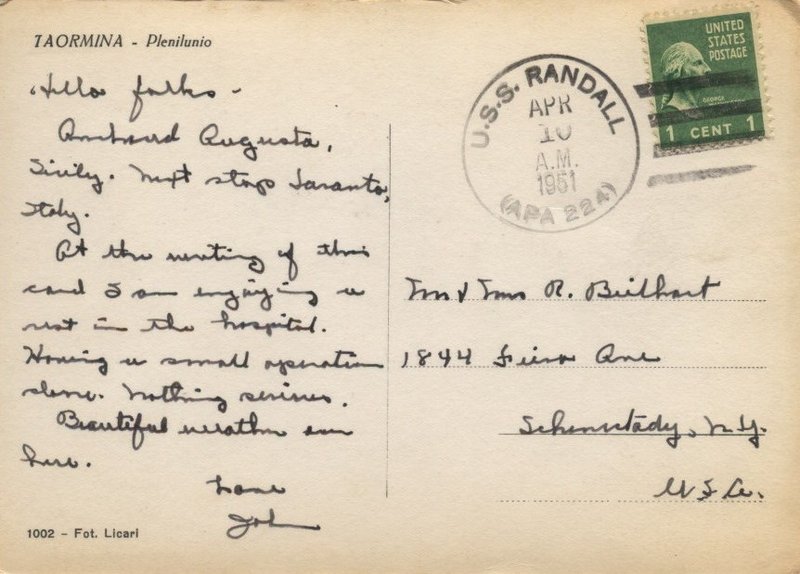 TAORMINA - Plenilunio
Hello folks -
Anchored Augusta,
Sicily. Next stop Taranto,
Italy.
At the writing of this
card I am enjoying a
rest in the hospital.
Having a small operation
done. Nothing serious.
Beautiful weather over
here.
Love
John
1002 - Fot. Licari
U.S.S. RANDALL
APR
10
A.M.
1951
(APA 224)
UNITED
STATES
POSTAGE
GEORGE
1 CENT 1
Mr & Mrs R.
1844 Ave
Schenectady, N.Y.
U.S.A.